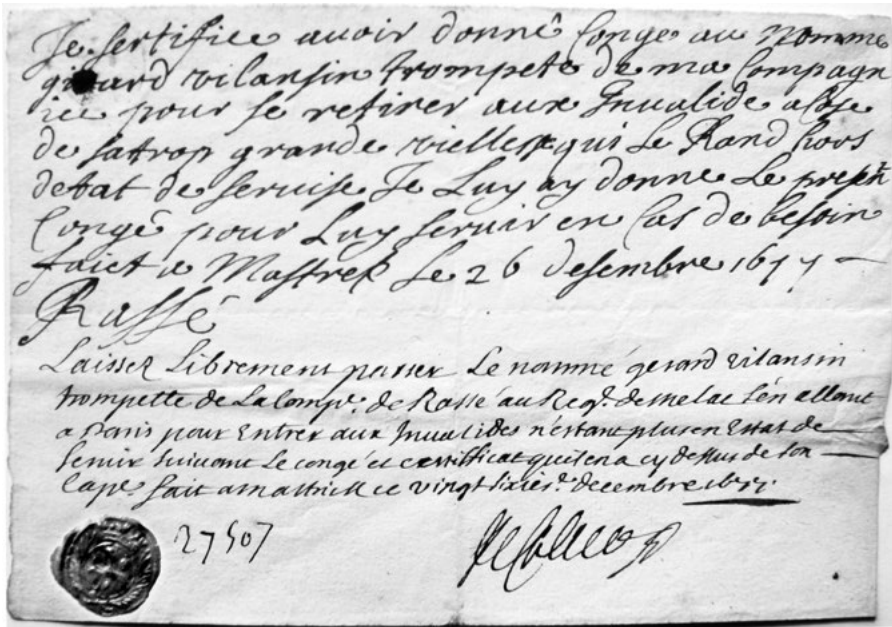 Je sertifice avoir donné Congé au nomme
girard vilansin trompete de ma Compagn
iee pour se retirer aux Inualide a Cose
de satrop grande vielless qui Le Rand hors
detat de seruise Je Luy ay donne Le presnt
Congé pour Luy seruir en Cas de besoin
faict a Mastrek Le 26 desembre 1677
Rassé
Laissez Librement passer Le nommé gerard vilansin
trompette de La Compe. de Rassé au Regt. de melac s'en allant
a Paris pour Entrer aux Inualides n'estant plus en Estat de
seruir suivant Le congé et certifficat quil en a cy dessus de son
Cape. fait a mastrick ce vingt sixies. decembre 1677.
27507